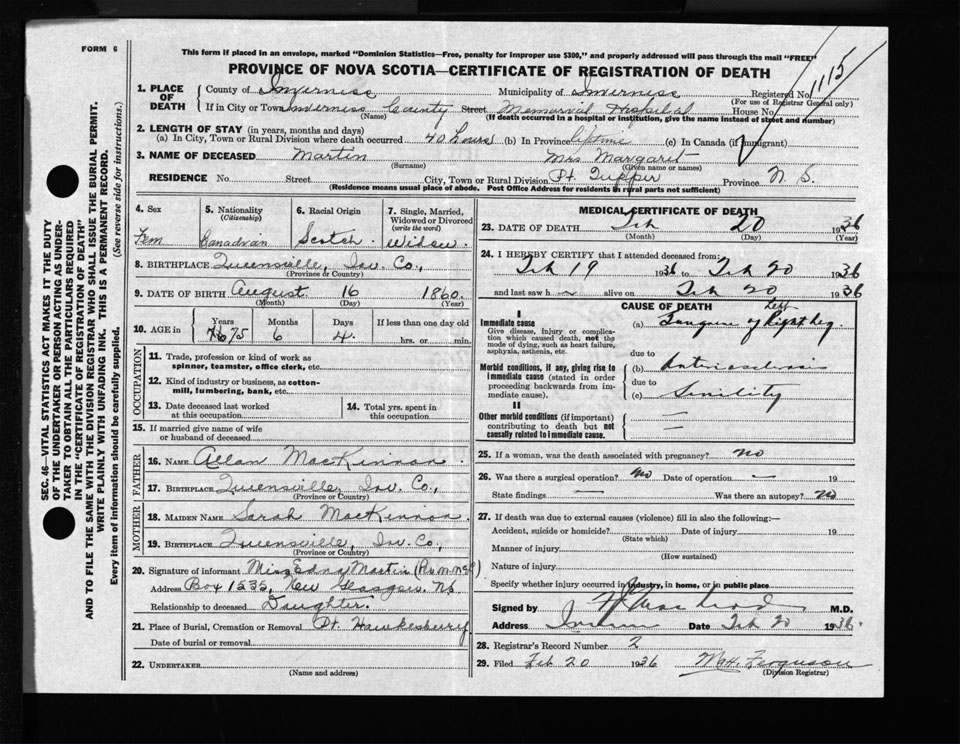 FORM 6
This form if placed in an envelope, marked "Dominion Statistics—Free, penalty for improper use $300," and properly addressed will pass through the mail "FREE"
PROVINCE OF NOVA SCOTIA—CERTIFICATE OF REGISTRATION OF DEATH
1115
1. PLACE OF DEATH
County of Inverness Municipality of Inverness Registered No.
(For use of Registrar General only)
If in City or Town Inverness County Street Memorial Hospital House No.
(Name) (If death occurred in a hospital or institution, give the name instead of street and number)
2. LENGTH OF STAY (in years, months and days)
(a) In City, Town or Rural Division where death occurred 40 hours (b) In Province lifetime (c) In Canada (if immigrant)
3. NAME OF DECEASED Martin Mrs Margaret
(Surname) (Given name or names)
RESIDENCE No. Street City, Town or Rural Division Pt. Tupper Province N. S.
(Residence means usual place of abode. Post Office Address for residents in rural parts not sufficient)
4. Sex Fem
5. Nationality (Citizenship) Canadian
6. Racial Origin Scotch
7. Single, Married, Widowed or Divorced (write the word) Widow
8. BIRTHPLACE Queensville, Inv. Co.,
(Province or Country)
9. DATE OF BIRTH August 16 1860
(Month) (Day) (Year)
10. AGE in Years Months Days If less than one day old
76 75 6 4 hrs. or min.
OCCUPATION
11. Trade, profession or kind of work as spinner, teamster, office clerk, etc.
12. Kind of industry or business, as cotton-mill, lumbering, bank, etc.
13. Date deceased last worked at this occupation
14. Total yrs. spent in this occupation
15. If married give name of wife or husband of deceased
FATHER
16. NAME Allan MacKinnon
17. BIRTHPLACE Queensville, Inv. Co.,
(Province or Country)
MOTHER
18. MAIDEN NAME Sarah MacKinnon
19. BIRTHPLACE Queensville, Inv. Co.,
(Province or Country)
20. Signature of informant Miss Edna Martin
Address Box 1535, New Glasgow, NS
Relationship to deceased Daughter.
21. Place of Burial, Cremation or Removal Pt. Hawkesbury
Date of burial or removal
22. UNDERTAKER
(Name and address)
MEDICAL CERTIFICATE OF DEATH
23. DATE OF DEATH Feb 20 1936
(Month) (Day) (Year)
24. I HEREBY CERTIFY that I attended deceased from:
Feb 19 1936 to Feb 20 1936
and last saw h alive on Feb 20 1936
CAUSE OF DEATH
I
Immediate cause
Give disease, injury or complication which caused death, not the mode of dying, such as heart failure, asphyxia, asthenia, etc.
(a) Gangrene of Right Leg
Left
due to
Morbid conditions, if any, giving rise to immediate cause (stated in order proceeding backwards from immediate cause).
(b) Arteriosclerosis
due to
(c) Senility
II
Other morbid conditions (if important) contributing to death but not causally related to immediate cause.
25. If a woman, was the death associated with pregnancy? no
26. Was there a surgical operation? no Date of operation — 19
State findings — Was there an autopsy? no
27. If death was due to external causes (violence) fill in also the following:—
Accident, suicide or homicide? Date of injury 19
(State which)
Manner of injury
(How sustained)
Nature of injury
Specify whether injury occurred in industry, in home, or in public place
Signed by M.D.
Address Date Feb 20 1936.
28. Registrar's Record Number 2
29. Filed Feb 20 1936 Ferguson
(Division Registrar)
SEC. 46—VITAL STATISTICS ACT MAKES IT THE DUTY
OF THE UNDERTAKER OR PERSON ACTING AS UNDER-
TAKER TO OBTAIN ALL THE PARTICULARS REQUIRED
IN THE "CERTIFICATE OF REGISTRATION OF DEATH"
AND TO FILE THE SAME WITH THE DIVISION REGISTRAR WHO SHALL ISSUE THE BURIAL PERMIT.
WRITE PLAINLY WITH UNFADING INK. THIS IS A PERMANENT RECORD.
Every item of information should be carefully supplied. (See reverse side for instructions.)